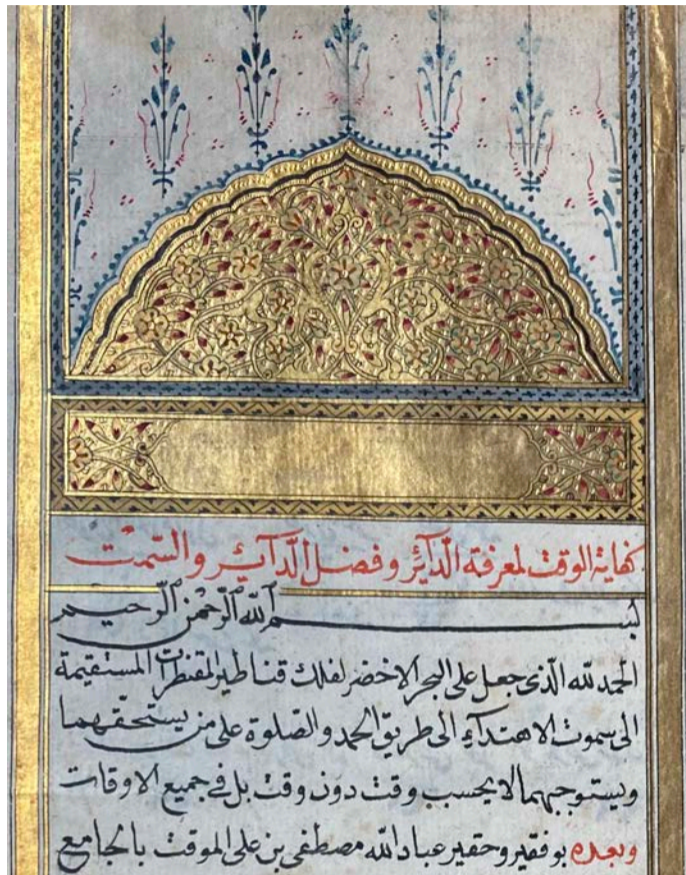 كفاية الوقت لمعرفة الدآئر وفضل الدآئر والسمت
بسم الله الرحمن الرحيم
الحمد لله الذى جعل على البحر الاخضر لفلك قناطير المقنطرات المستقيمة
الى سموت الاهتدآء الى طريق الحمد والصلوة على من يستحقهما
ويستوجبهما لا يحسب وقت دون وقت بل فى جميع الاوقات
وبعده بو فقير وحقير عباد الله مصطفى بن على الموقت بالجامع